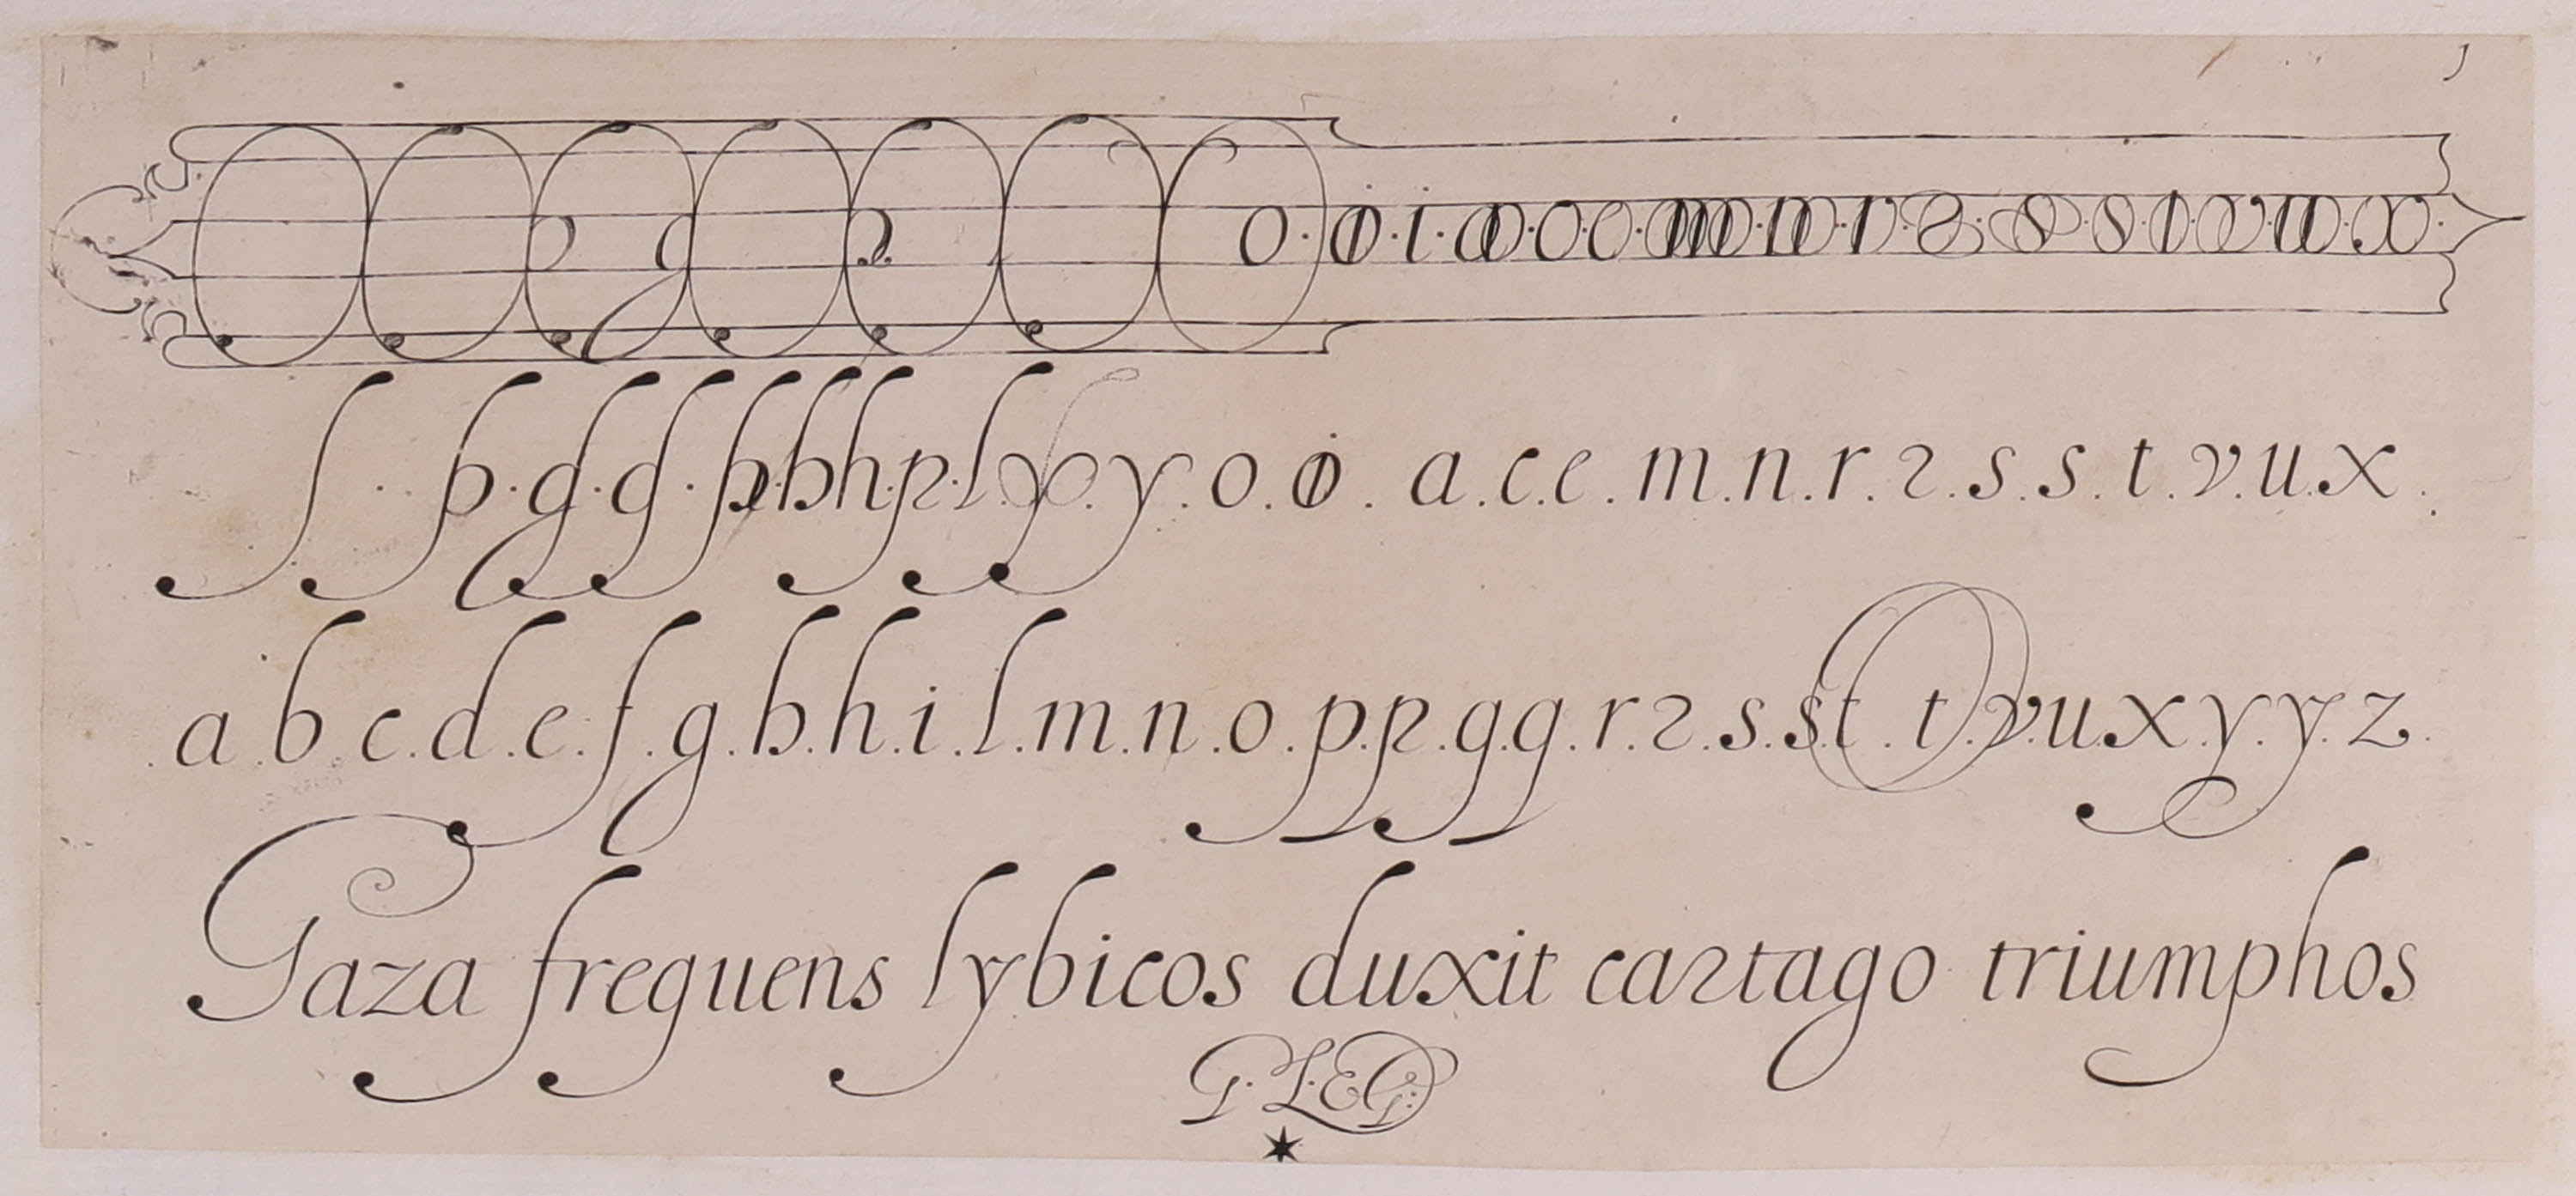 o·o·i·a·o·c·e·m·n·r·2·s·s·t·v·u·x·
ſ. p. g. q. p. b. h. p. l. y. y. o. o. a. c. e. m. n. r. 2. s. s. t. v. u. x.
. a. b. c. d. e. f. g. b. h. i. l. m. n. o. p. p. q. q. r. 2. s. st. t. v. u. x. y. y. z.
Gaza frequens lybicos duxit cartago triumphos